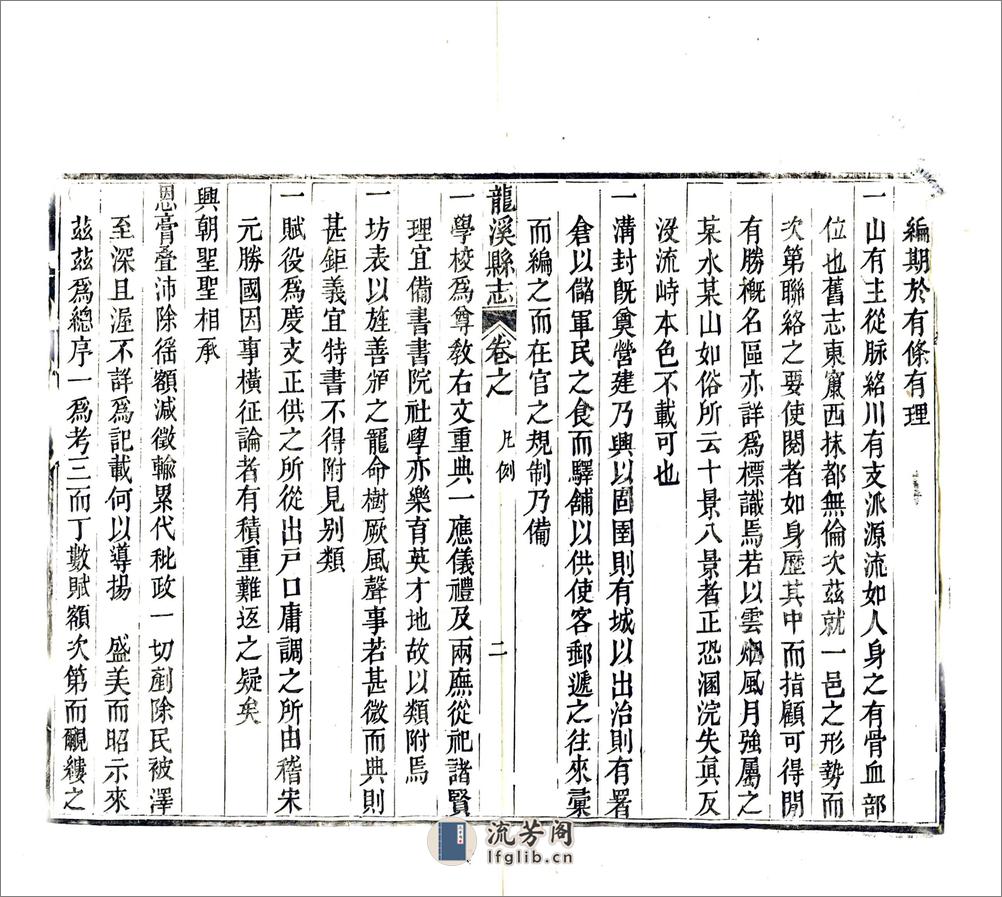 編期於有條有理
一山有主從脉絡川有支派源流如人身之有骨血部
位也舊志東竄西抹都無倫次茲就一邑之形勢而
次第聯絡之要使閱者如身歷其中而指顧可得間
有勝槪名區亦詳爲標識焉若以雲烟風月強屬之
某水某山如俗所云十景八景者正恐溷浣失眞反
沒流峙本色不載可也
一溝封旣奠營建乃興以固圉則有城以出治則有署
倉以儲軍民之食而驛舖以供使客郵遞之往來彙
而編之而在官之規制乃備
龍溪縣志 卷之 凡例 二
一學校爲尊敎右文重典一應儀禮及兩廡從祀諸賢
理宜備書書院社學亦樂育英才地故以類附焉
一坊表以旌善頒之寵命樹厥風聲事若甚微而典則
甚鉅義宜特書不得附見别類
一賦役爲度支正供之所從出戸口庸調之所由稽宋
元勝國因事橫征論者有積重難返之疑矣
興朝聖聖相承
恩膏叠沛除徭額減徵輸累代秕政一切剷除民被澤
至深且渥不詳爲記載何以導揚 盛美而昭示來
茲茲爲總序一爲考三而丁數賦額次第而覼縷之
流芳阁
lfglib.cn